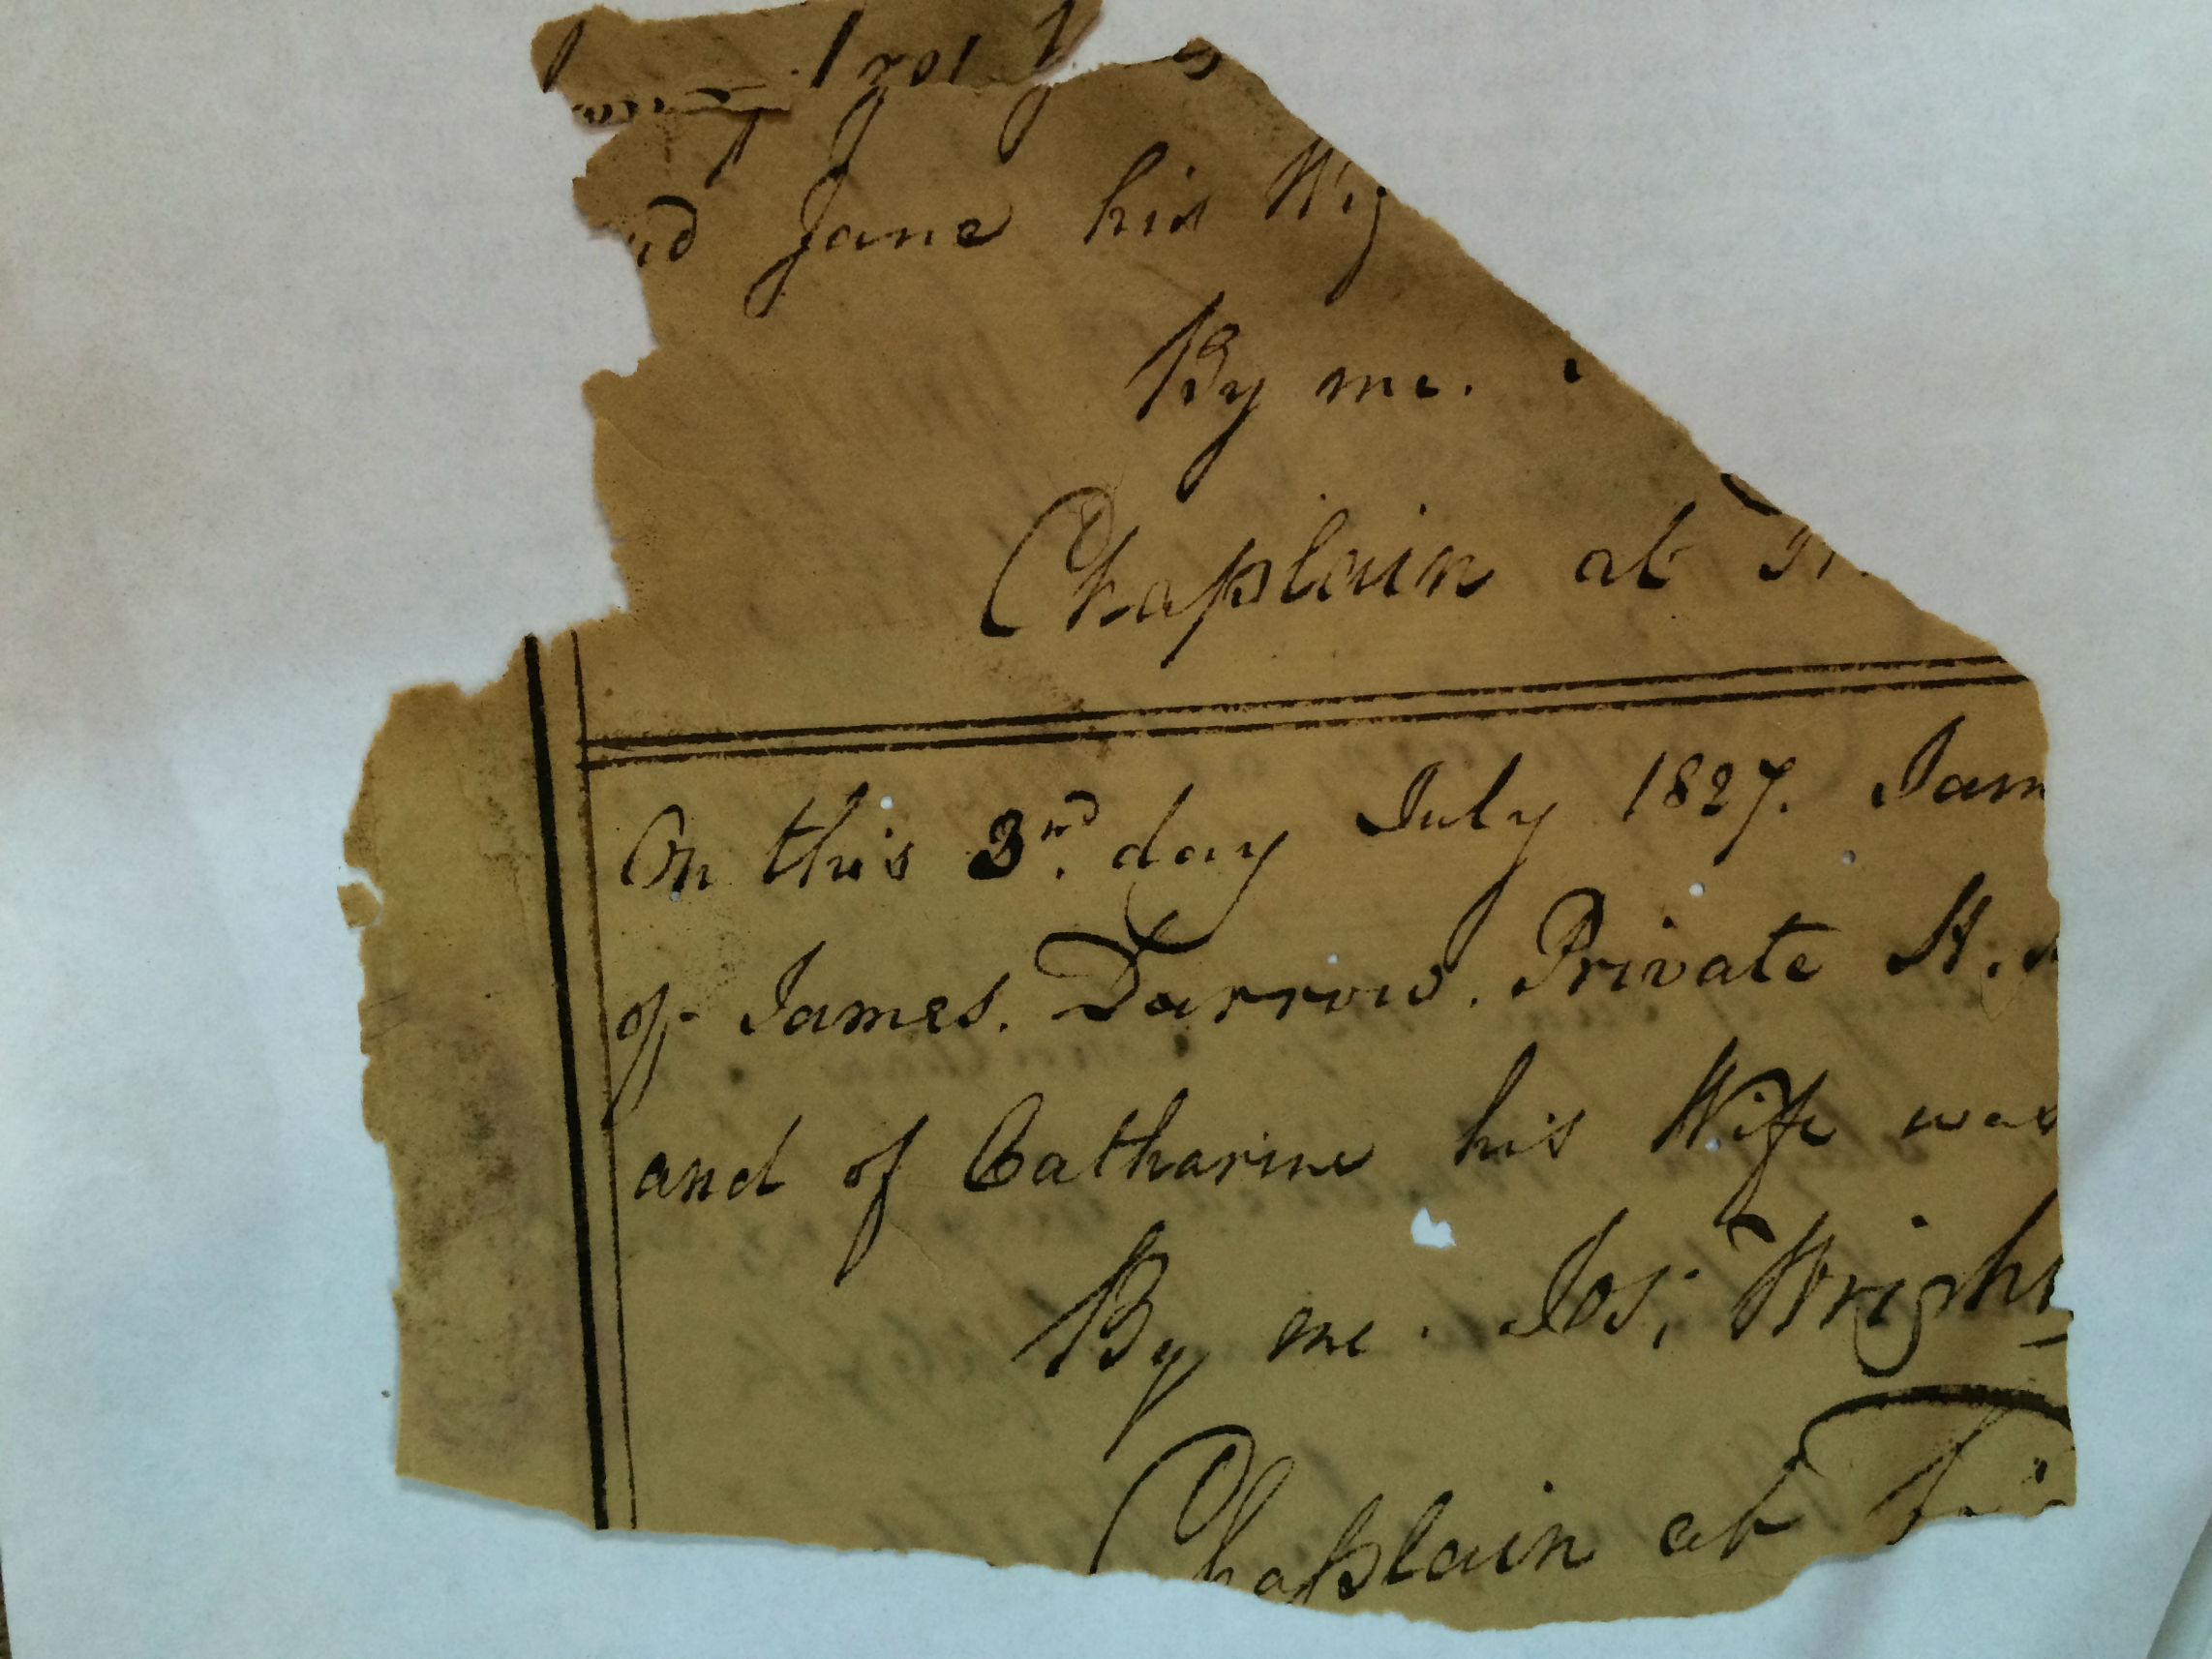 Jane his
By me.
Chaplain at
On this 3rd. day July 1827. Jam
of James. Darrow. Private H.
and of Catharine his Wife was
By me. Jos; Wright
Chaplain at